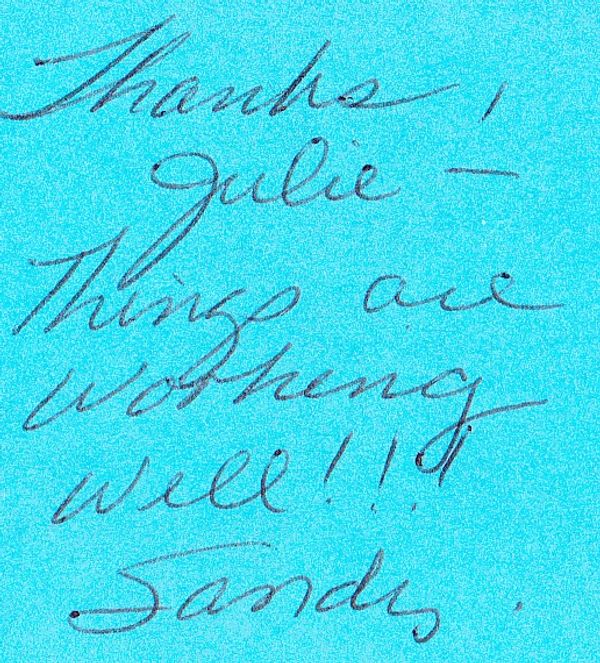 Thanks,
Julie —
Things are
working
well!!!
Sandy.